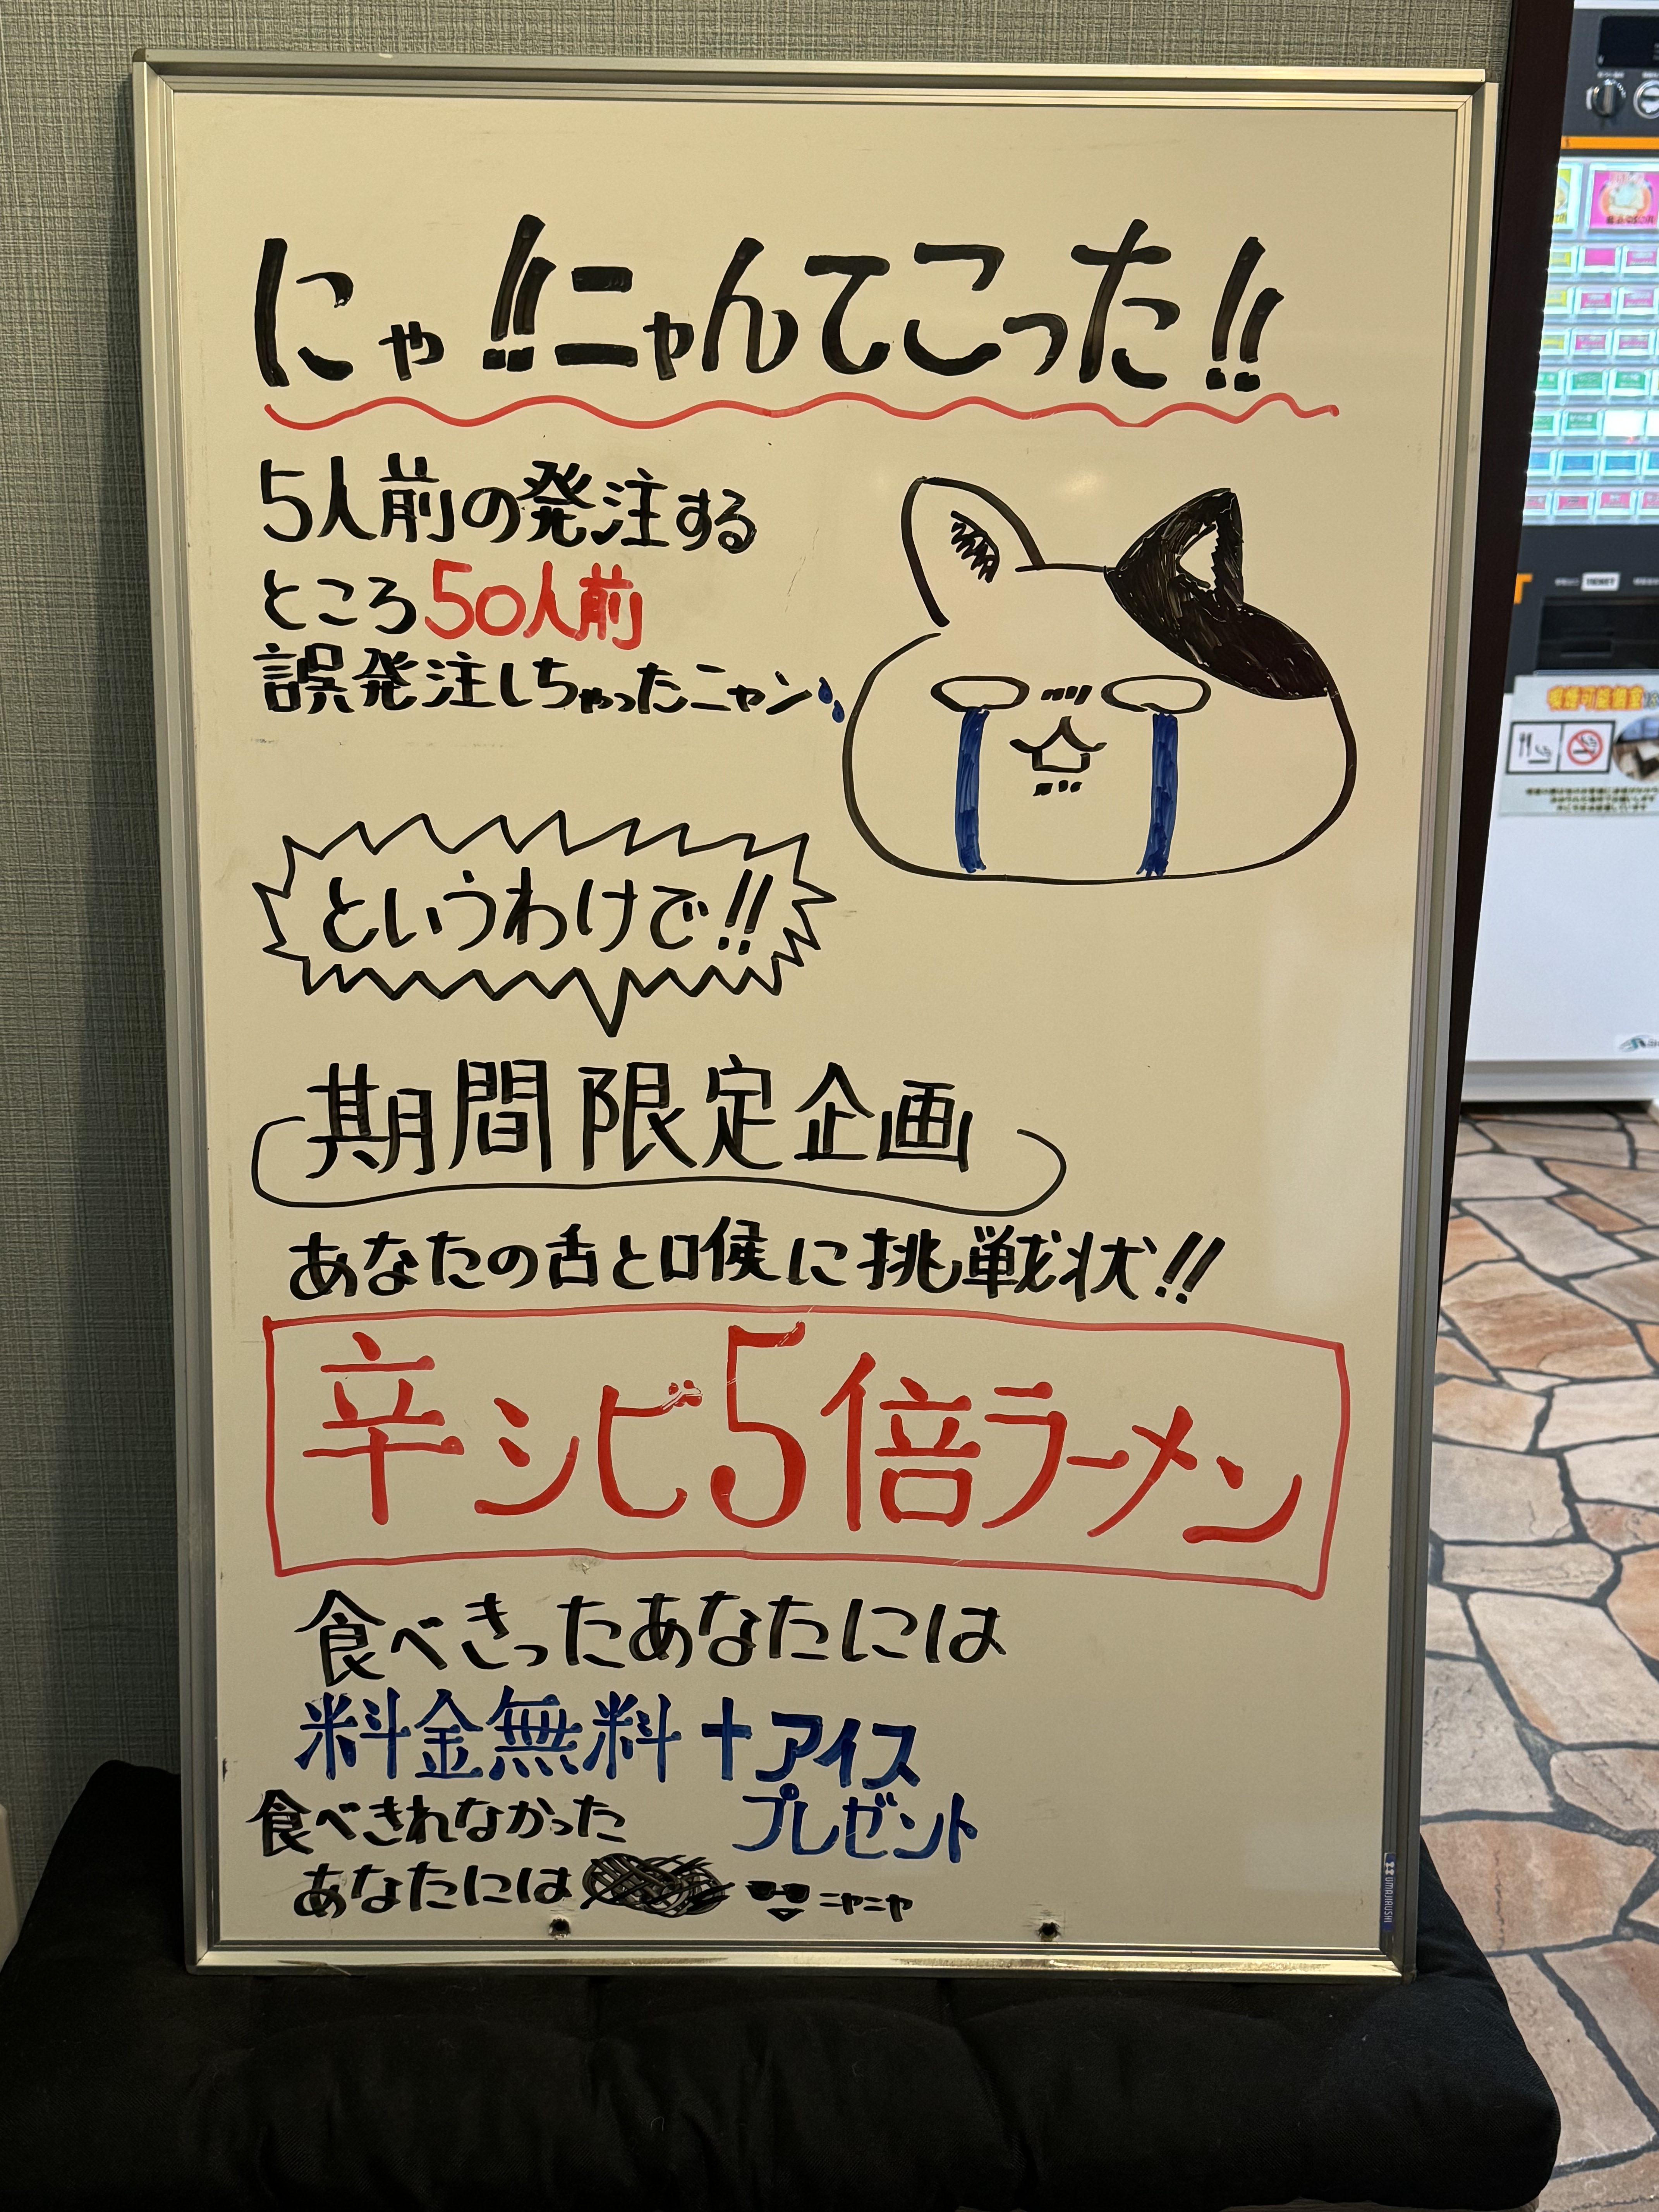 にゃ!!ニャんてこった!!
5人前の発注する
ところ50人前
誤発注しちゃったニャン
というわけで!!
期間限定企画
あなたの舌と喉に挑戦状!!
辛シビ5倍ラーメン
食べきったあなたには
料金無料+アイス
プレゼント
食べきれなかった
あなたには ニヤニヤ
UMAJIRUSHI
TICKET
喫煙可能個室